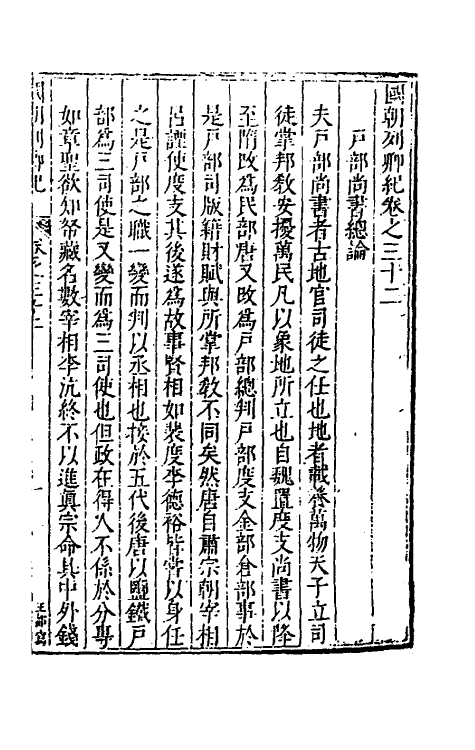 國朝列卿紀卷之三十二
戶部尚書總論
夫戶部尚書者古地官司徒之任也地者載養萬物天子立司
徒掌邦敎安擾萬民凡以象地所立也自魏置度支尚書以降
至隋改爲民部唐又改爲戶部總判戶部度支金部倉部事於
是戶部司版籍財賦與所掌邦敎不同矣然唐自肅宗朝宰相
呂諲使度支其後遂爲故事賢相如裴度李德裕皆嘗以身任
之是戶部之職一變而判以丞相也接於五代後唐以鹽鐵戶
部爲三司使是又變而爲三司使也但政在得人不係於分專
如章聖欲知帑藏名數宰相李沆終不以進眞宗命具中外錢
國朝列卿紀